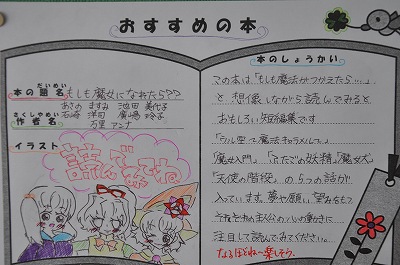 おすすめの本
だいめい
本の題名
もしも魔女になれたら??
あさの ますみ 池田 美代子
さくしゃめい
作者名
石崎 洋司 廣嶋 玲子
万里 アンナ
イラスト
読んでみてね
本のしょうかい
この本は「もしも魔法がつかえたら…」
と 想像しながら読んでみると
おもしろい 短編集です
魔法キャラメル
「魔女入門」「ふたごの妖精、
「天使の階段」の5つの話が
入っています。夢や願い、望みをもつ
それぞれの主人公の心の動きに
注目して読んでみてください。
なるほどね〜楽しそう。